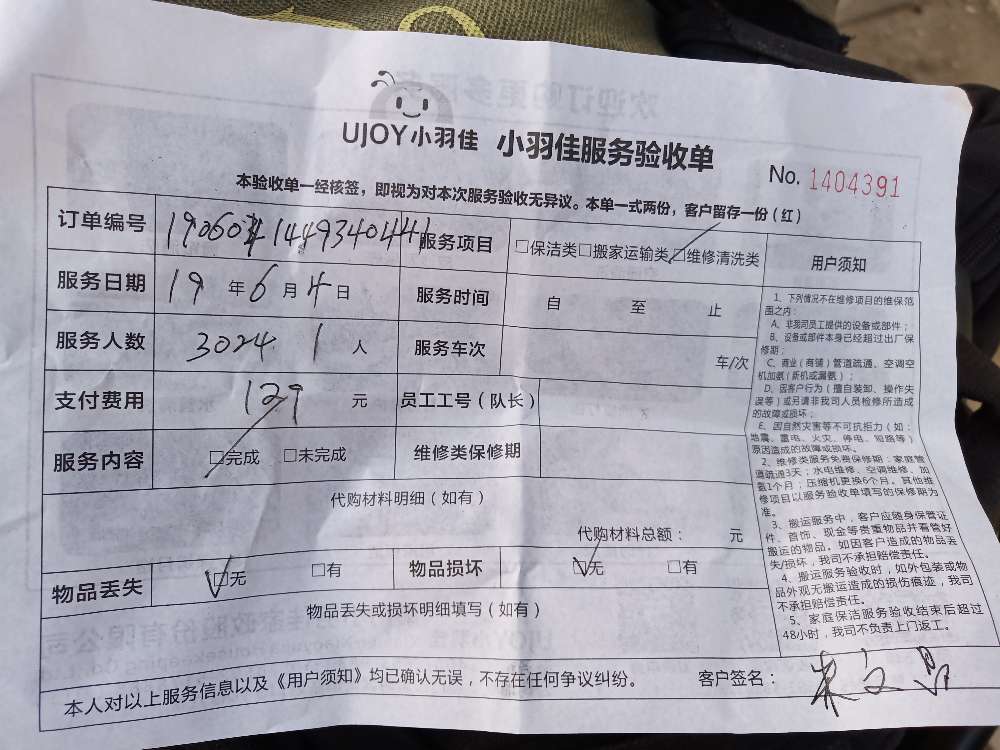 UJOY小羽佳 小羽佳服务验收单
No. 1404391
本验收单一经核签，即视为对本次服务验收无异议。本单一式两份，客户留存一份（红）
订单编号
服务项目 □保洁类□搬家运输类□维修清洗类
用户须知
服务日期 19 年 6 月 4 日 服务时间 自 至 止
服务人数 3024 1 人 服务车次 车/次
支付费用 129 元 员工工号（队长）
服务内容 □完成 □未完成 维修类保修期
代购材料明细（如有）
代购材料总额： 元
物品丢失 □无 □有 物品损坏 □无 □有
物品丢失或损坏明细填写（如有）
1、下列情况不在维修项目的维保范
围之内：
A、非我司员工提供的设备或部件；
B、设备或部件本身已经超过出厂保
修期；
C、商业（商铺）管道疏通、空调空
机加氨（新机或漏氨）；
D、因客户行为（擅自装卸、操作失
误等）或另请非我司人员检修所造成
的故障或损坏；
E、因自然灾害等不可抗拒力（如：
地震、雷电、火灾、停电、短路等）
原因造成的故障或损坏。
2、维修类服务免费保修期：家庭管
道疏通3天；水电维修、空调维修、加
氨1个月；压缩机更换6个月。其他维
修项目以服务验收单填写的保修期为
准。
3、搬运服务中，客户应随身保管证
件、首饰、现金等贵重物品并看管好
搬运的物品。如因客户造成的物品丢
失/损坏，我司不承担赔偿责任。
4、搬运服务验收时，如外包装或物
品外观无搬运造成的损伤痕迹，我司
不承担赔偿责任。
5、家庭保洁服务验收结束后超过
48小时，我司不负责上门返工。
本人对以上服务信息以及《用户须知》均已确认无误，不存在任何争议纠纷。 客户签名：